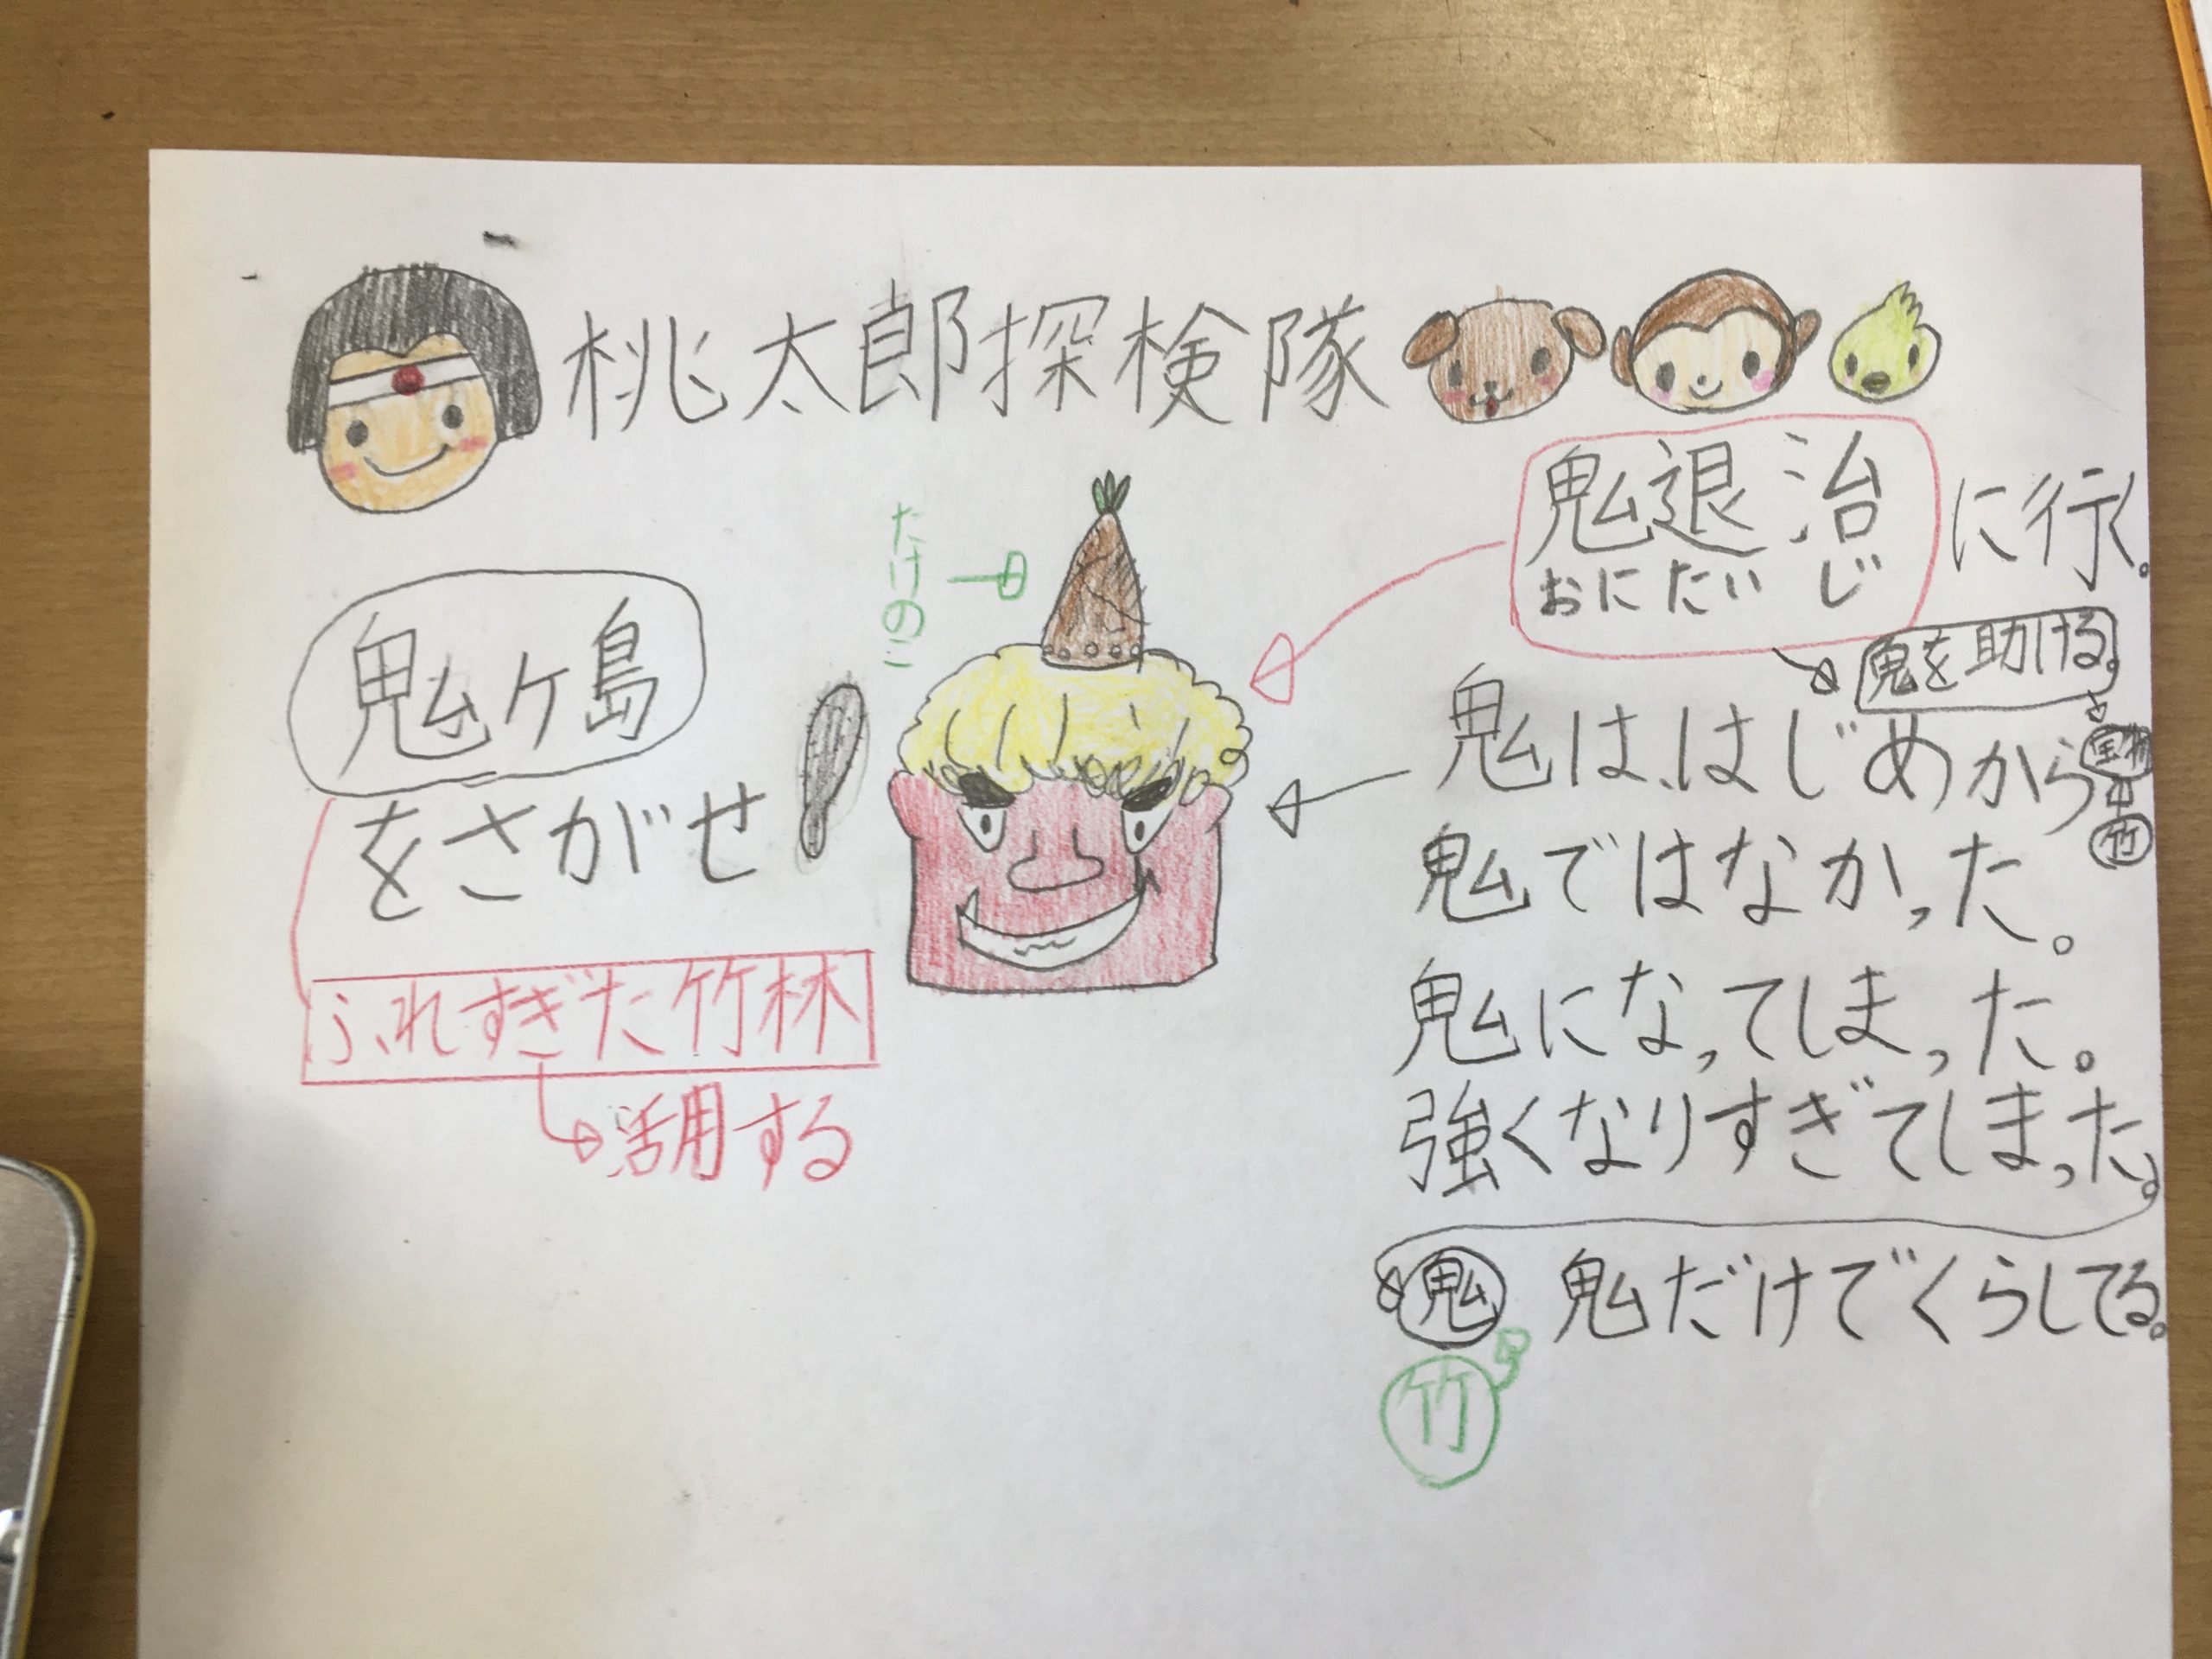 桃太郎探検隊
鬼退治に行く。
おにたいじ
鬼を助ける。
宝物
竹
たけのこ
鬼ヶ島
をさがせ
ふれすぎた竹林
活用する
鬼は、はじめから
鬼ではなかった。
鬼になってしまった。
強くなりすぎてしまった。
鬼 鬼だけでくらしてる。
竹